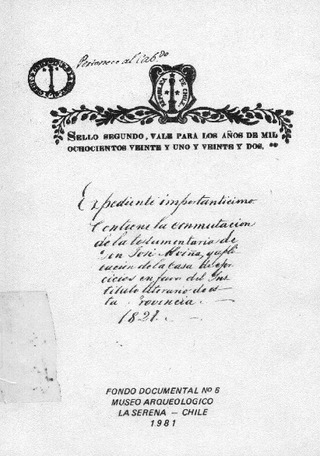 Pertenece al Cab.do
SELLO SEGUNDO, VALE PARA LOS AÑOS DE MIL
OCHOCIENTOS VEINTE Y UNO Y VEINTE Y DOS.
Expediente importanticimo
Contiene la conmutacion
de la testamentaria de
Don José
cacion de la Casa de exer
cicios en favor del Ins
tituto literario de es
ta Provincia.
1821.
FONDO DOCUMENTAL Nº 6
MUSEO ARQUEOLOGICO
LA SERENA – CHILE
1981